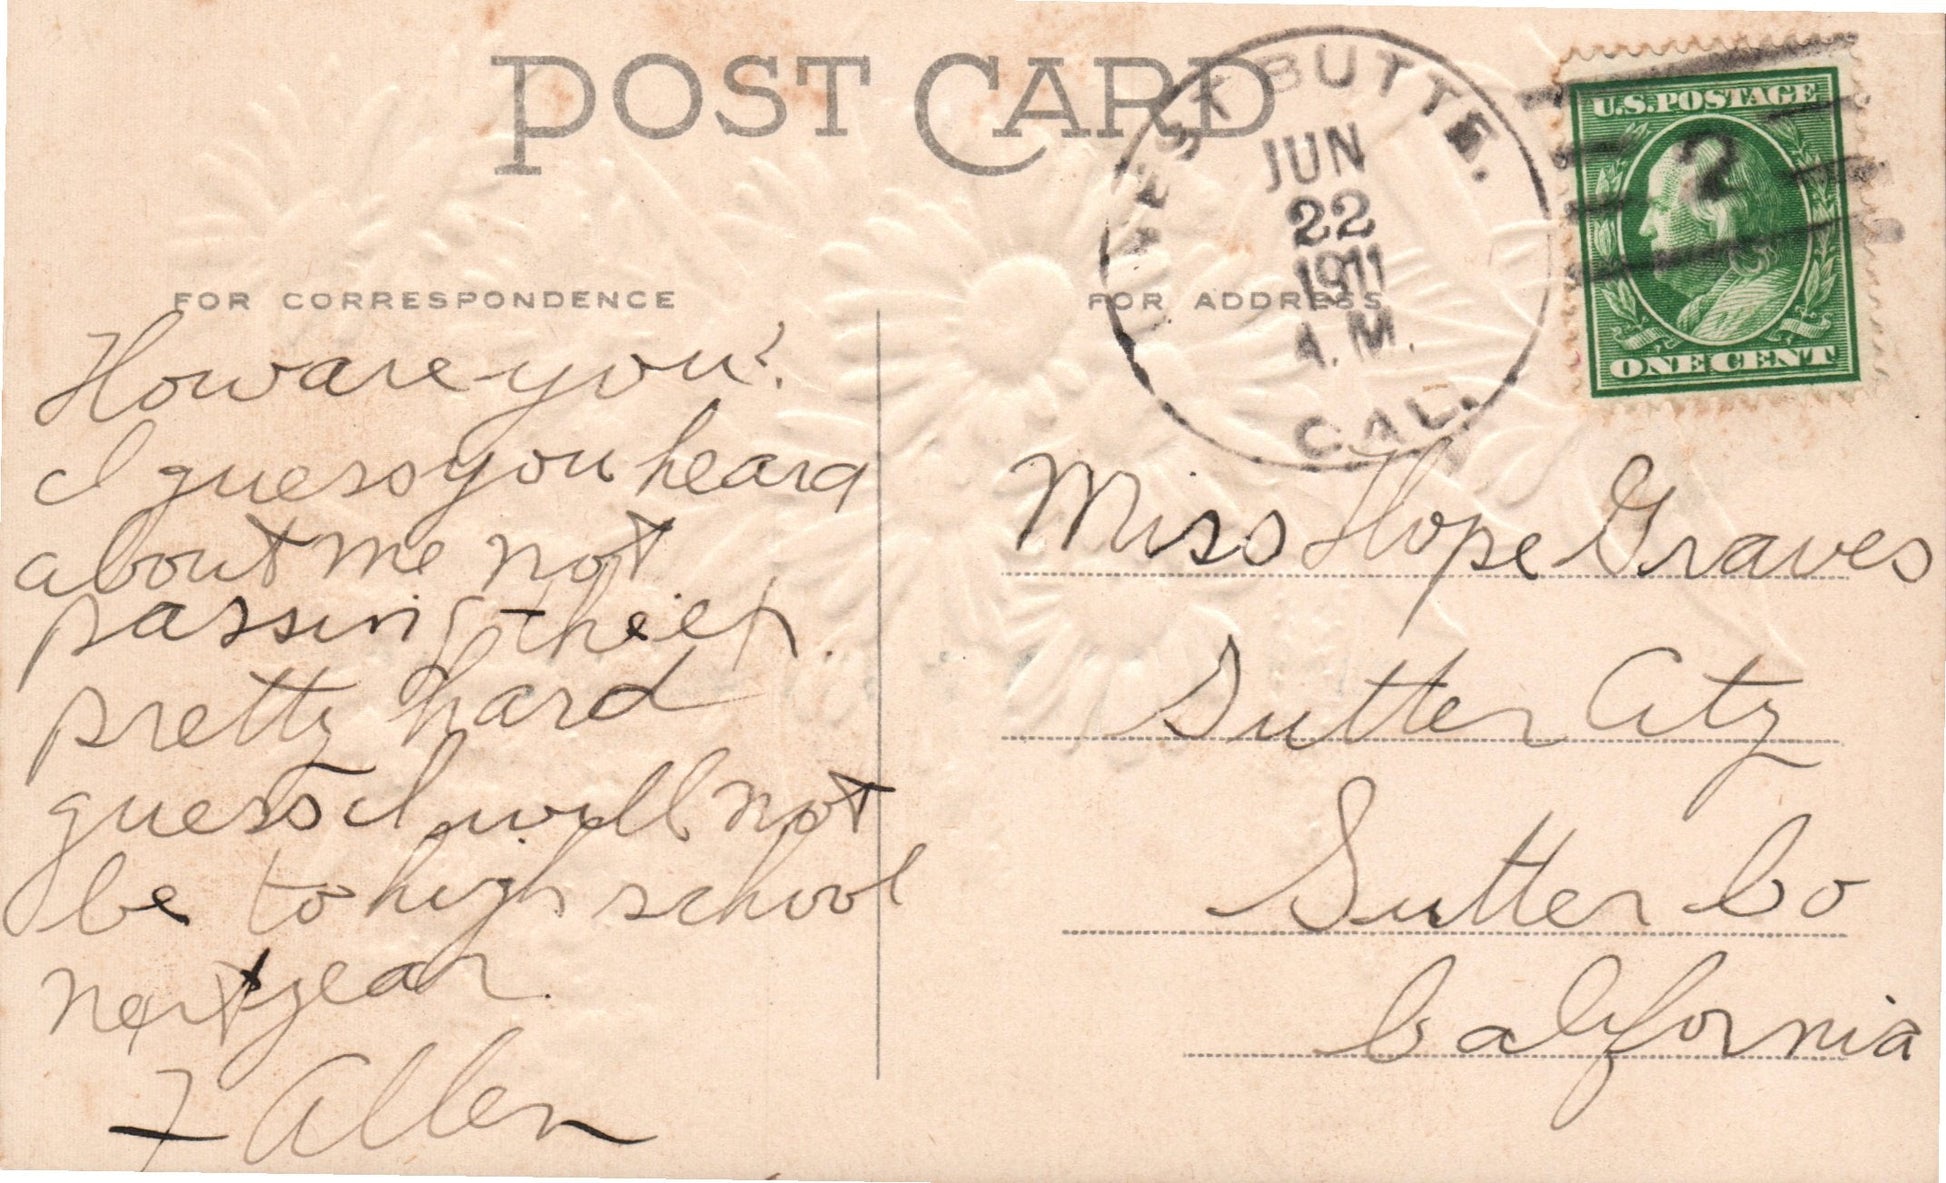 POST CARD
WEST BUTTE,
JUN
22
1911
A.M.
CAL.
U.S. POSTAGE
2
ONE CENT
FOR CORRESPONDENCE
FOR ADDRESS
How are you?
I guess you heard
about me not
passing
pretty hard
guess I will not
be to high school
next year.
Allen
Miss Hope Graves
Sutter City
Sutter Co
California